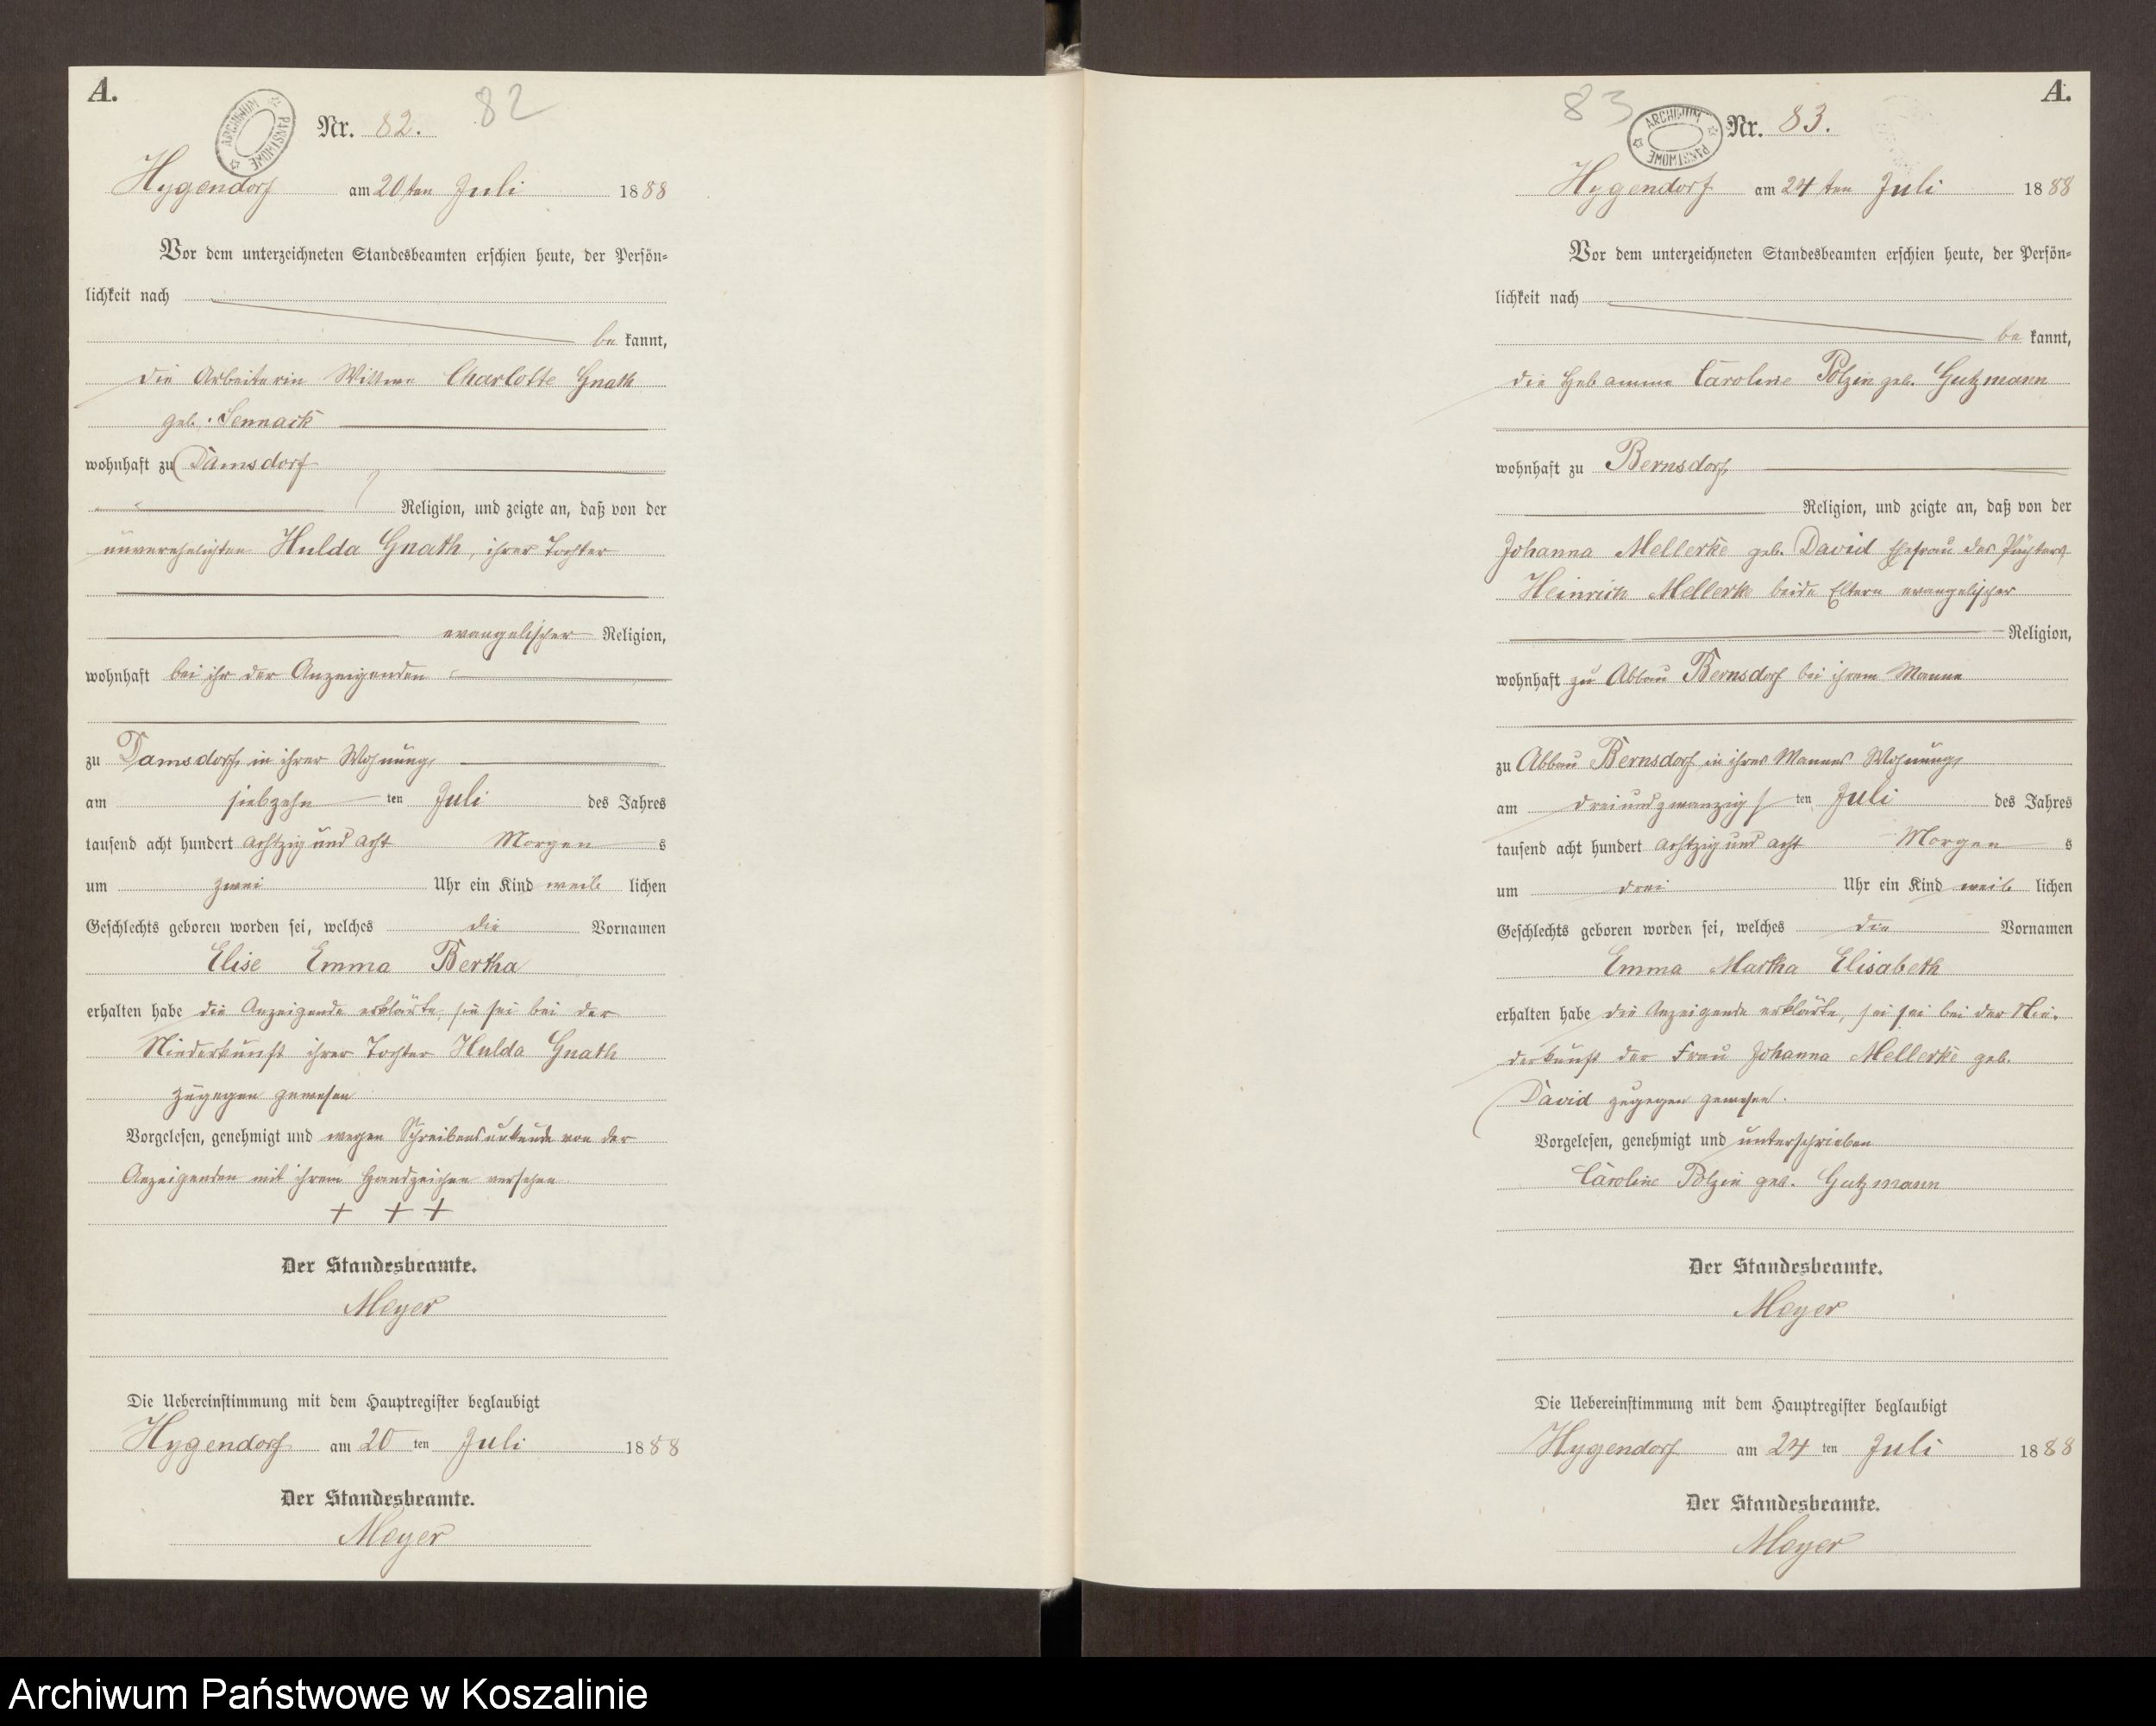 A.
ARCHIWUM PAŃSTWOWE
Nr. 82.
82
Hygendorf am 20ten Juli 1888
Vor dem unterzeichneten Standesbeamten erschien heute, der Persön=
lichkeit nach
be kannt,
die Arbeiterin Wittwe Charlotte Gnath
geb. Sennack
wohnhaft zu Damsdorf
Religion, und zeigte an, daß von der
unverehelichten Hulda Gnath, ihrer Tochter
evangelischer Religion,
wohnhaft bei ihr der Anzeigenden
zu Damsdorf, in ihrer Wohnung,
am siebzehn ten Juli des Jahres
tausend acht hundert achtzig und acht Morgen s
um zwei Uhr ein Kind weib lichen
Geschlechts geboren worden sei, welches die Vornamen
Elise Emma Bertha
erhalten habe die Anzeigende erklärte, sie sei bei der
Niederkunft ihrer Tochter Hulda Gnath
zugegen gewesen
Vorgelesen, genehmigt und wegen Schreibensunkunde von der
Anzeigenden mit ihrem Handzeichen versehen
+ + +
Der Standesbeamte.
Meyer
Die Uebereinstimmung mit dem Hauptregister beglaubigt
Hygendorf am 20 ten Juli 1888
Der Standesbeamte.
Meyer
A.
83
ARCHIWUM PAŃSTWOWE
Nr. 83.
Hygendorf am 24 ten Juli 1888
Vor dem unterzeichneten Standesbeamten erschien heute, der Persön=
lichkeit nach
be kannt,
die Hebamme Caroline Polzin geb. Gutzmann
wohnhaft zu Bernsdorf
Religion, und zeigte an, daß von der
Johanna Mellerke geb. David Ehefrau des Pächters
Heinrich Mellerk beide Eltern evangelischer
Religion,
wohnhaft zu Abbau Bernsdorf bei ihrem Manne
zu Abbau Bernsdorf in ihres Mannes Wohnung,
am dreiundzwanzigs ten Juli des Jahres
tausend acht hundert achtzig und acht Morgen s
um drei Uhr ein Kind weib lichen
Geschlechts geboren worden sei, welches die Vornamen
Emma Martha Elisabeth
erhalten habe die Anzeigende erklärte, sei sei bei der Nie-
derkunft der Frau Johanna Mellerke geb.
David zugegen gewesen.
Vorgelesen, genehmigt und unterschrieben
Caroline Polzin geb. Gutzmann
Der Standesbeamte.
Meyer
Die Uebereinstimmung mit dem Hauptregister beglaubigt
Hygendorf am 24 ten Juli 1888
Der Standesbeamte.
Meyer
Archiwum Państwowe w Koszalinie